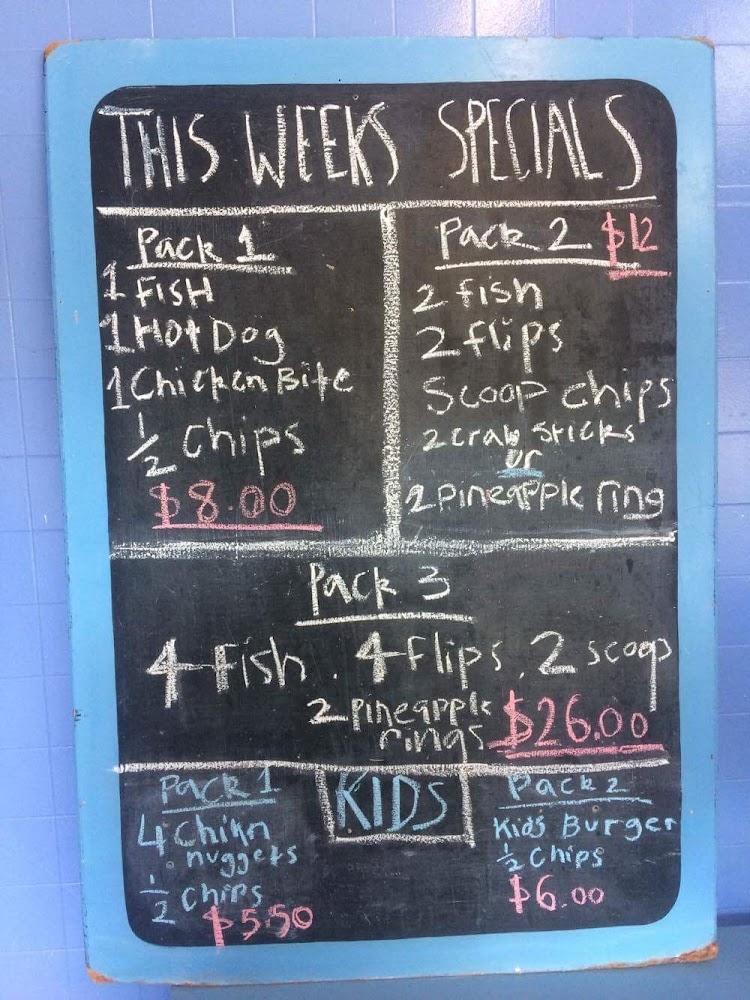 THIS WEEKS SPECIALS
Pack 1
1 FISH
1 HOt Dog
1 Chicken Bite
½ Chips
$8.00
Pack 2 $12
2 fish
2 flips
Scoop chips
2 crab sticks
or
2 pineapple ring
Pack 3
4 Fish . 4 Flips . 2 scoop
2 pineapple
rings $26.00
KIDS
Pack 1
4 Chikn
nuggets
½ Chips
$5.50
Pack 2
Kids Burger
½ Chips
$6.00